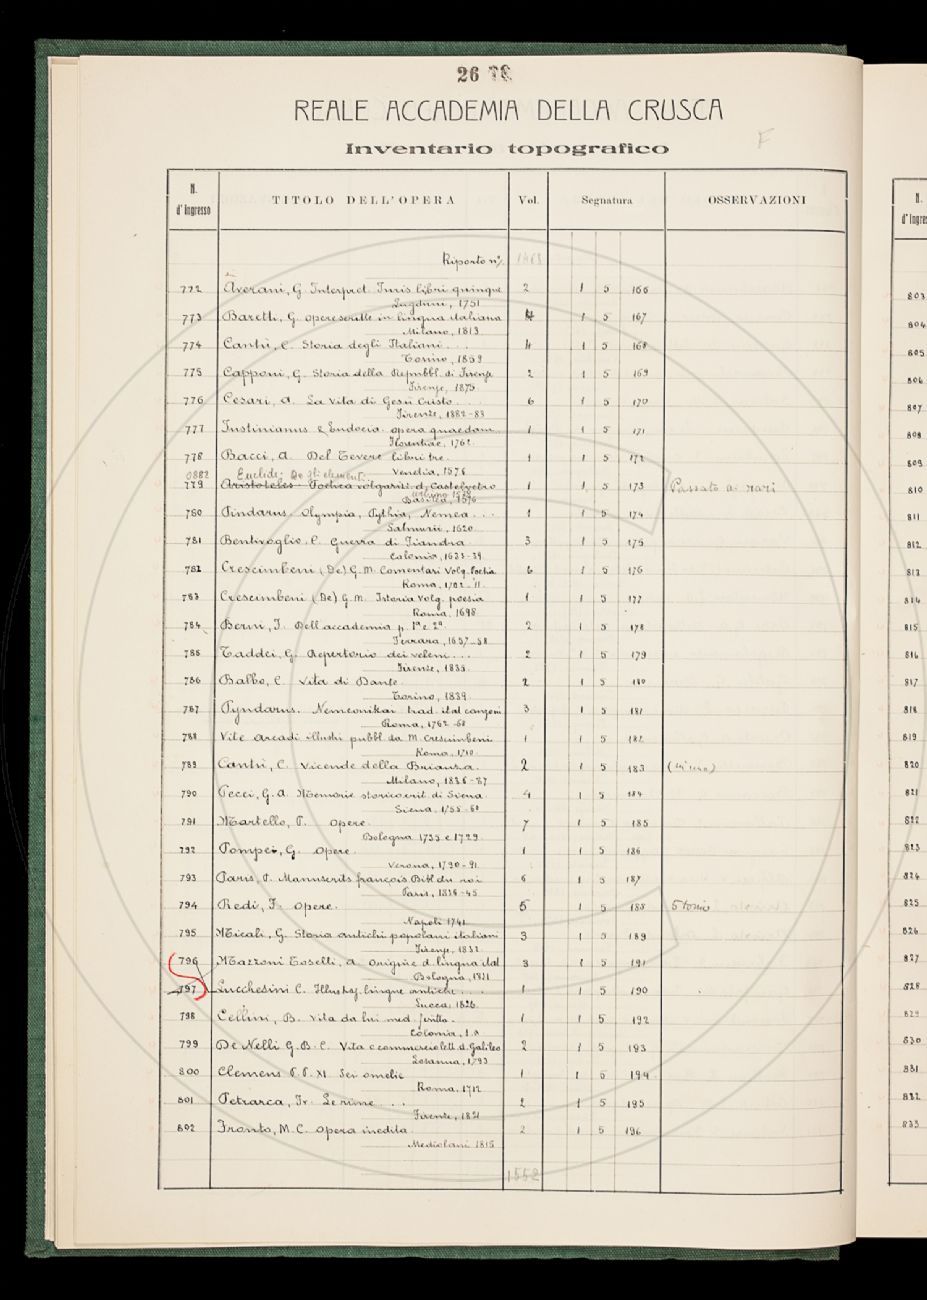 26
REALE ACCADEMIA DELLA CRUSCA
Inventario topografico
F
N. d'Ingresso TITOLO DELL'OPERA Vol. Segnatura OSSERVAZIONI
Riporto n°.
772 Averani, G. Interpret. Juris libri quinque 2 1 5 166
Lugduni, 1751
773 Baretti, G. opere scritte in lingua italiana 4 1 5 167
Milano, 1813
774 Cantù, C. Storia degli Italiani . . . 4 1 5 168
Torino, 1859
775 Capponi, G. Storia della Repubbl. di Firenze 2 1 5 169
Firenze, 1875
776 Cesari, A. La Vita di Gesù Cristo . . . 6 1 5 170
Firenze, 1882-83
777 Justinianus & Eudocia. opera quaedam 1 1 5 171
Florentiae, 1762
778 Bacci, A. Del Tevere libri tre. 1 1 5 172
Venetia, 1576
0882 Euclide; De gli elementi
779 Aristoteles. Poetica volgarizz. d. Castelvetro 1 1 5 173 Passato ai rari
Urbino 1575
Basilea, 1576
780 Pindarus. Olympia, Pythia, Nemea . . . 1 1 5 174
Salmurii, 1620
781 Bentivoglio, C. Guerra di Fiandra 3 1 5 175
Colonia, 1633-39
782 Crescimbeni (De) G. M. Comentari Volg. Poesia 6 1 5 176
Roma, 1702-'11
783 Crescimbeni (De) G. M. Istoria Volg. poesia 1 1 5 177
Roma, 1698
784 Berni, F. Dell'accademia p. 1ª e 2ª 2 1 5 178
Ferrara, 1657-58
785 Taddei, G. Repertorio dei veleni . . . 2 1 5 179
Firenze, 1835
786 Balbo, C. Vita di Dante. 2 1 5 180
Torino, 1839
787 Pyndarus. Nemeonikai trad. ital canzoni 3 1 5 181
Roma, 1762-68
788 Vite arcadi illustri pubbl. da M. Crescimbeni 1 1 5 182
Roma, 1710
789 Cantù, C. Vicende della Brianza. 2 1 5 183
Milano, 1836-37
790 Pecci, G. A. Memorie storico crit. di Siena 4 1 5 184
Siena, 1755-60
791 Martello, P. Opere. 7 1 5 185
Bologna 1735 e 1729
792 Pompei, G. Opere. 1 1 5 186
Verona, 1790-91
793 Paris, P. Manuscrits françois Bibl. du roi 6 1 5 187
Paris, 1836-45
794 Redi, F. Opere. 5 1 5 188
Napoli 1741
795 Micali, G. Storia antichi popolani italiani 3 1 5 189
Firenze, 1832
796 Mazzoni Toselli, O. Origine d. lingua ital 3 1 5 191
Bologna, 1831
797 Lucchesini C. Illustraz. lingue antiche . . . 1 1 5 190
Lucca, 1826
798 Cellini, B. Vita da lui med. scritta. 1 1 5 192
Colonia, s.a
799 De Nelli G. B. C. Vita e commercio lett. d. Galileo 2 1 5 193
Losanna, 1793
800 Clemens P. P. XI Sei omelie 1 1 5 194
Roma, 1712
801 Petrarca, Fr. Le rime . . . 2 1 5 195
Firenze, 1821
802 Fronto, M. C. Opera inedita 2 1 5 196
Mediolani 1815
1552
N. d'Ingres
803
804
805
806
807
808
809
810
811
812
813
814
815
816
817
818
819
820
821
822
823
824
825
826
827
828
829
830
831
832
833